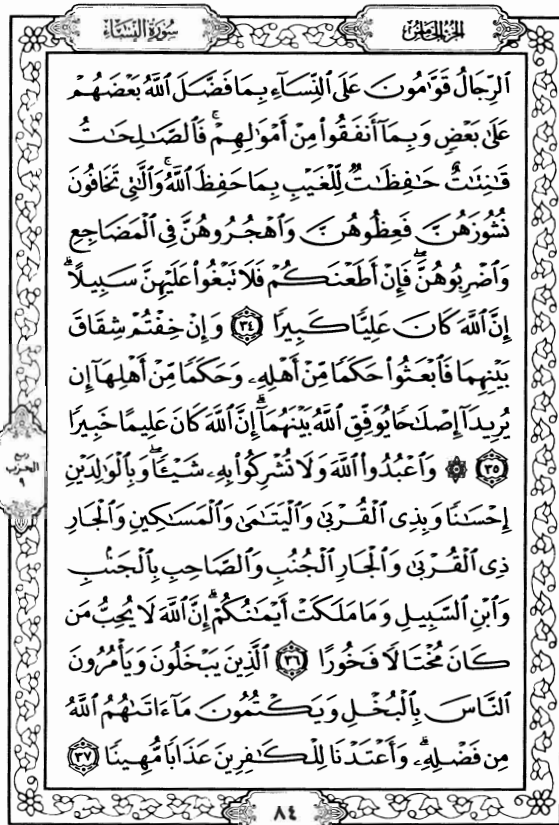 سُورَةُ النِّسَاءِ
الجُزْءُ الخَامِسُ
ٱلرِّجَالُ قَوَّٰمُونَ عَلَى ٱلنِّسَآءِ بِمَا فَضَّلَ ٱللَّهُ بَعْضَهُمْ
عَلَىٰ بَعْضٍ وَبِمَآ أَنفَقُوا۟ مِنْ أَمْوَٰلِهِمْ ۚ فَٱلصَّٰلِحَٰتُ
قَٰنِتَٰتٌ حَٰفِظَٰتٌ لِّلْغَيْبِ بِمَا حَفِظَ ٱللَّهُ ۚ وَٱلَّٰتِى تَخَافُونَ
نُشُوزَهُنَّ فَعِظُوهُنَّ وَٱهْجُرُوهُنَّ فِى ٱلْمَضَاجِعِ
وَٱضْرِبُوهُنَّ ۖ فَإِنْ أَطَعْنَكُمْ فَلَا تَبْغُوا۟ عَلَيْهِنَّ سَبِيلًا ۗ
إِنَّ ٱللَّهَ كَانَ عَلِيًّا كَبِيرًا ٣٤ وَإِنْ خِفْتُمْ شِقَاقَ
بَيْنِهِمَا فَٱبْعَثُوا۟ حَكَمًا مِّنْ أَهْلِهِۦ وَحَكَمًا مِّنْ أَهْلِهَآ إِن
يُرِيدَآ إِصْلَٰحًا يُوَفِّقِ ٱللَّهُ بَيْنَهُمَآ ۗ إِنَّ ٱللَّهَ كَانَ عَلِيمًا خَبِيرًا
٣٥ ۞ وَٱعْبُدُوا۟ ٱللَّهَ وَلَا تُشْرِكُوا۟ بِهِۦ شَيْـًٔا ۖ وَبِٱلْوَٰلِدَيْنِ
إِحْسَٰنًا وَبِذِى ٱلْقُرْبَىٰ وَٱلْيَتَٰمَىٰ وَٱلْمَسَٰكِينِ وَٱلْجَارِ
ذِى ٱلْقُرْبَىٰ وَٱلْجَارِ ٱلْجُنُبِ وَٱلصَّاحِبِ بِٱلْجَنۢبِ
وَٱبْنِ ٱلسَّبِيلِ وَمَا مَلَكَتْ أَيْمَٰنُكُمْ ۗ إِنَّ ٱللَّهَ لَا يُحِبُّ مَن
كَانَ مُخْتَالًا فَخُورًا ٣٦ ٱلَّذِينَ يَبْخَلُونَ وَيَأْمُرُونَ
ٱلنَّاسَ بِٱلْبُخْلِ وَيَكْتُمُونَ مَآ ءَاتَىٰهُمُ ٱللَّهُ
مِن فَضْلِهِۦ ۗ وَأَعْتَدْنَا لِلْكَٰفِرِينَ عَذَابًا مُّهِينًا ٣٧
ربع
الحزب
٩
٨٤